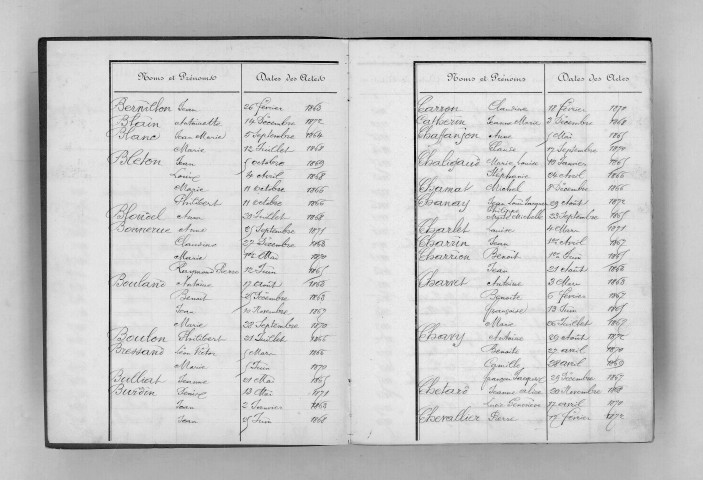 Noms et Prénoms Dates des Actes
Bernillon Jean 26 février 1863
Blain Antoinette 19 Décembre 1872
Blanc Jean Marie 5 Septembre 1864
Marie 12 Juillet 1868
Bleton Jean 5 octobre 1869
Louise 4 avril 1868
Marie 11 octobre 1866
Philibert 11 octobre 1866
Blondel 20 Juillet 1868
Bonnerue Anne 25 Septembre 1871
Claudine 27 Décembre 1863
Marie 1er Mai 1870
Raymond Pierre 12 Juin 1865
Bouland Antoine 17 août 1863
Benoit 25 Décembre 1863
Jean 10 Novembre 1867
Marie 28 Septembre 1870
Boulon Philibert 21 Juillet 1866
Bressand Léon Victor 5 Mars 1866
Marie 5 Juin 1870
Bulliat Jeanne 21 Mai 1865
Burdin 13 Mai 1871
Jean 2 Janvier 1863
Jean 25 Juin 1868
Noms et Prénoms Dates des Actes
Carron Claudine 18 février 1870
Catherin Jeanne Marie 2 Décembre 1868
Chaffanjon Anne 5 Mai 1865
Claude 17 Septembre 1870
Chaligaud Marie Louise 10 Janvier 1865
Stéphanie 24 avril 1866
Chamat Michel 8 Décembre 1866
Chanay Jean Louis Jacques Philippe 29 août 1872
22 Septembre 1865
Charlet Louise 4 Mars 1871
Charrin Jean 1er Avril 1867
Charrion Benoit 1er Juin 1865
Jean 21 août 1863
Charvet Antoine 3 Mars 1863
Benoite 6 février 1867
Françoise 13 Juin 1865
Marie 26 Juillet 1867
Chavy Antoine 29 août 1872
Benoite 27 avril 1870
Camille 28 avril 1869
François Jacques 29 Décembre 1867
Chetard Jeanne 20 Novembre 1868
Geneviève 17 avril 1870
Chevallier Pierre 17 février 1872